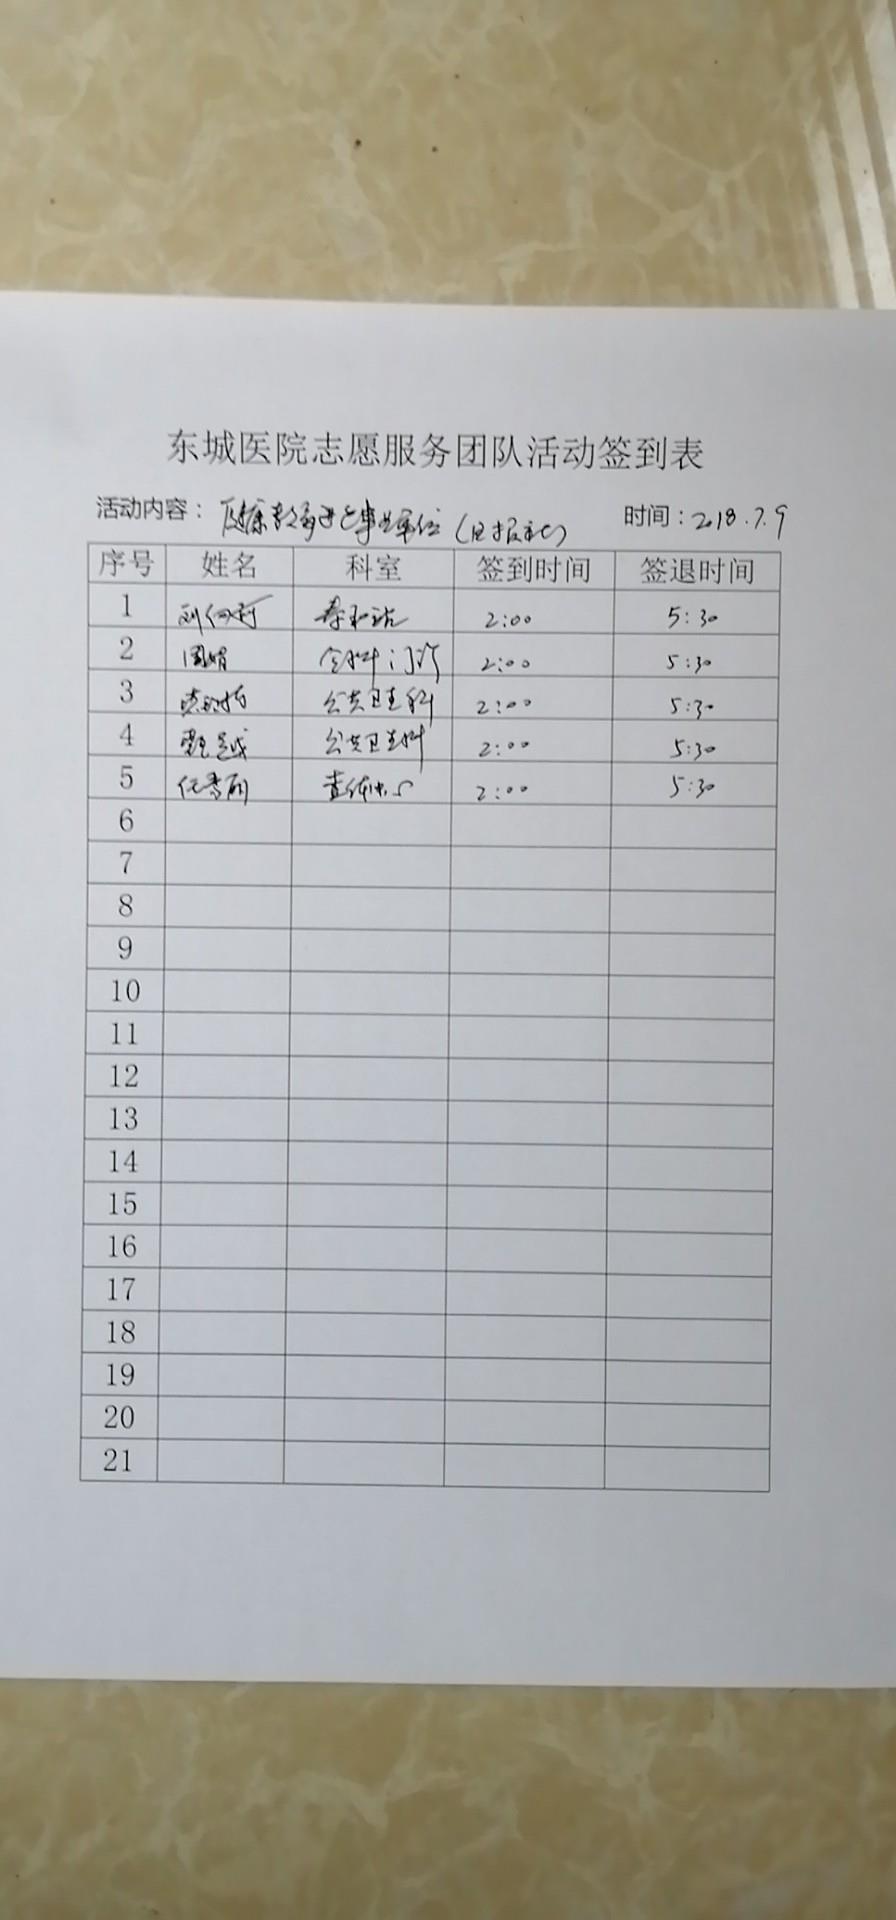 东城医院志愿服务团队活动签到表
活动内容：医疗教育进企事业单位（日报社） 时间：2018.7.9
序号 姓名 科室 签到时间 签退时间
1 2:00 5:30
2 周娟 全科门诊 2:00 5:30
3 公共卫生科 2:00 5:30
4 甄越 公共卫生科 2:00 5:30
5 任秀丽 查体中心 2:00 5:30
6
7
8
9
10
11
12
13
14
15
16
17
18
19
20
21